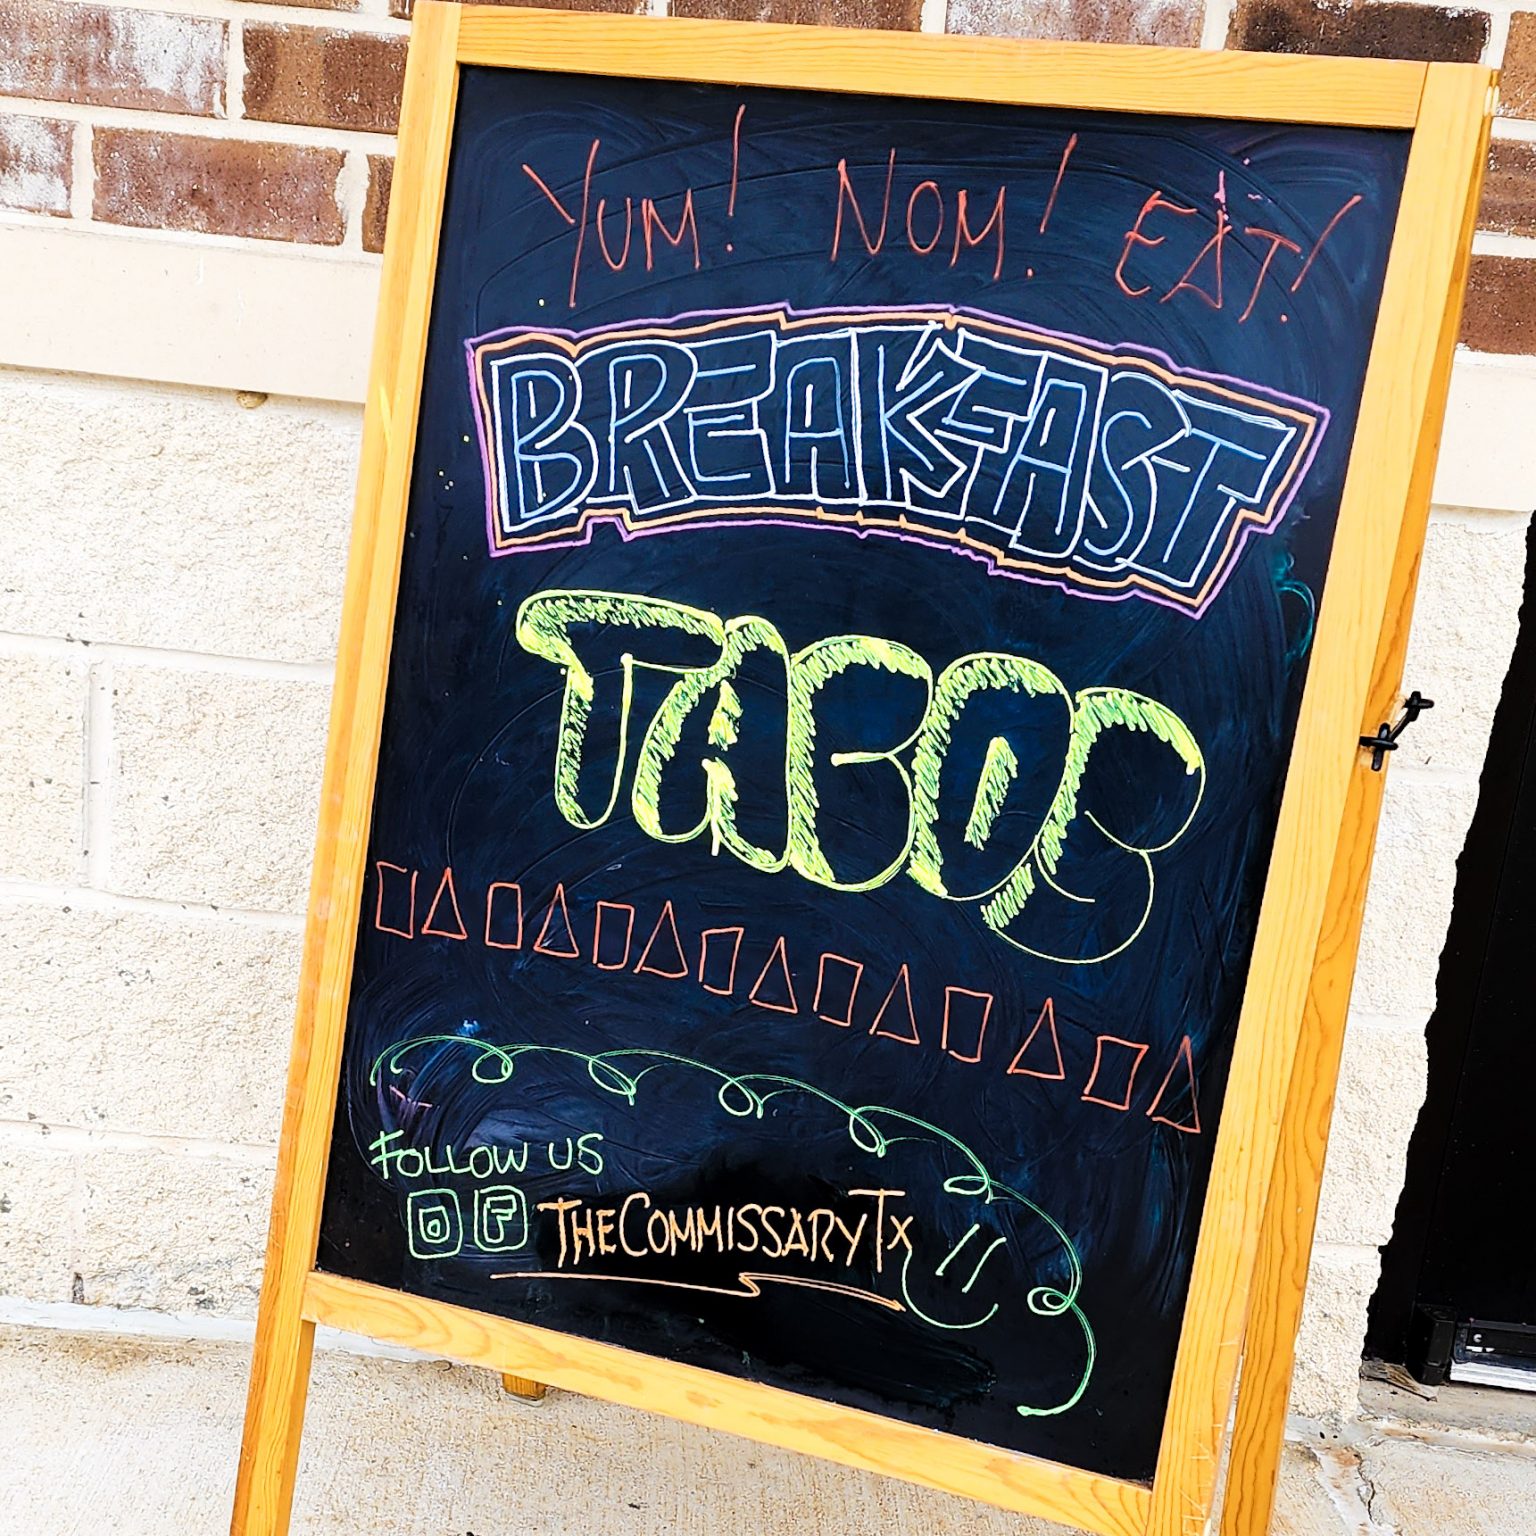 YUM! NOM! EAT!
BREAKFAST
TACOS
FOLLOW US
THECOMMISSARYTX